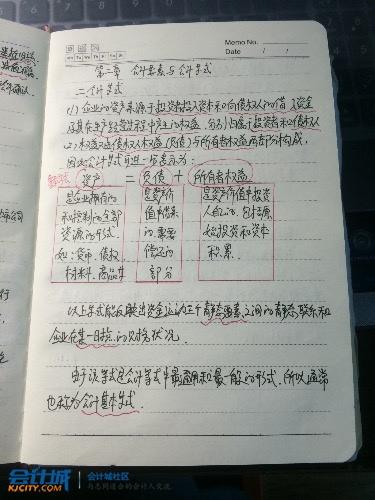 Memo No.
Mo Tu We Th Fr Sa Su
Date / /
第二章 会计要素与会计等式
二、会计等式
(1) 企业的资产来源于投资者投入资本和向债权人的借入资金
及其在生产经营过程中产生的权益，分别归属于投资者和债权人
(2) 权益又由债权人权益(负债)与所有者权益两部分构成，
因此会计等式可进一步表示为：
资产 = 负债 + 所有者权益
是企业拥有的
和控制的全部
资源的形式
如：货币、债权
材料、商品等
是资产价
值中借来
的需要
偿还的
部分
是资产价值中投资
人自己的，包括原
始投资和资本
积累.
以上等式能反映出资金运动三个静态要素之间的静态联系和
企业在某一日期的财务状况.
由于该等式是会计等式中最通用和最一般的形式，所以通常
也称为会计基本等式.
会计城
KJCITY.COM
会计城社区
与志同道合的会计人交流